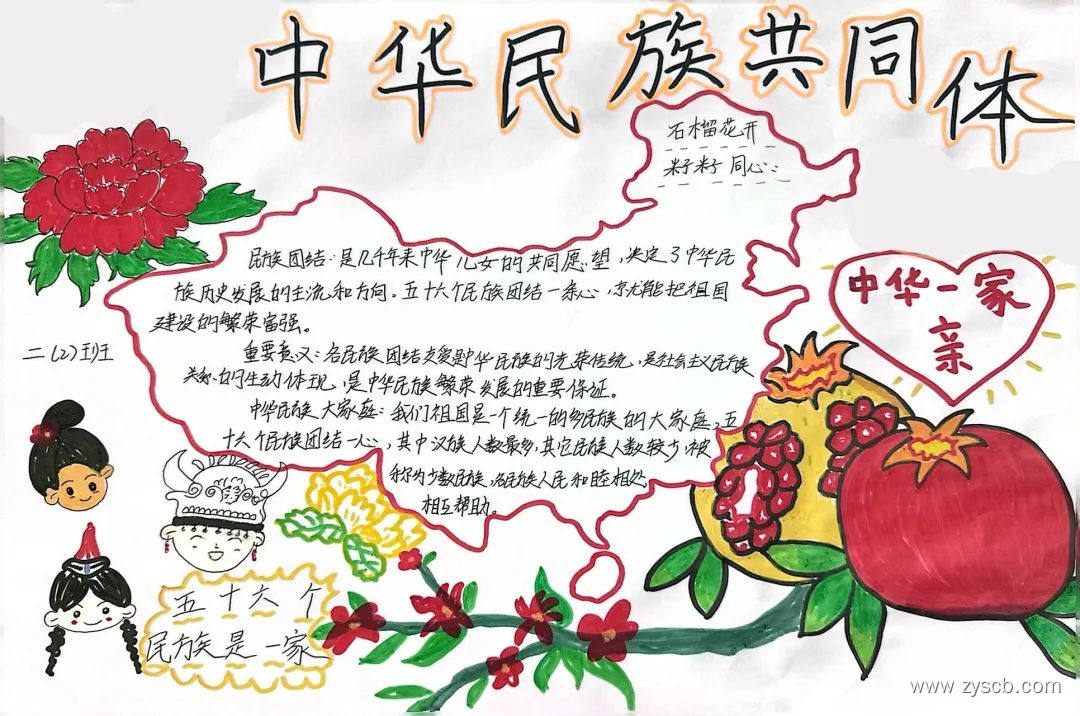 中华民族共同体
石榴花开
籽籽同心:
民族团结:是几千年来中华儿女的共同愿望,决定了中华民
族历史发展的主流和方向。五十六个民族团结一条心,才能把祖国
建设的繁荣富强。
重要意义:各民族团结友爱是中华民族的光荣传统,是社会主义民族
关系的生动体现,是中华民族繁荣发展的重要保证。
中华民族大家庭:我们祖国是一个统一的多民族的大家庭,五
十六个民族团结一心,其中汉族人数最多,其它民族人数较少,被
称为少数民族,各民族人民和睦相处
相互帮助。
中华一家
亲
二(2)班
五十六个
民族是一家
www.zyscb.com